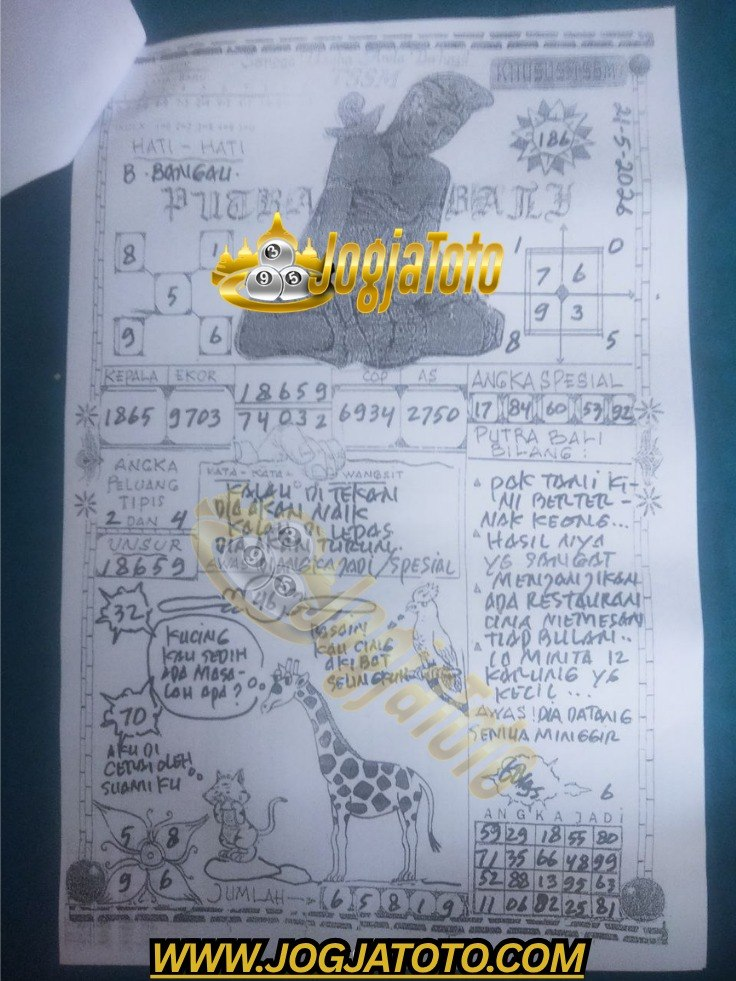 KHUSUS TSSM
TSSM
21-5-2026
186
HATI - HATI
B. BANGAU.
PUTRA BALI
JogjaToto
3
9 5
8 1
5
9 6
1 0
7 6
9 3
8 5
KEPALA EKOR
1865 9703
18659
74032
COP AS
6934 2750
ANGKA SPESIAL
17 84 60 53 92
PUTRA BALI
BILANG :
ANGKA
PELUANG
TIPIS
2 DAN 4
UNSUR
18659
KATA - KATA WANGSIT
KALAU DI TEKAN
DIA AKAN NAIK
KALAU DI LEPAS
DIA AKAN TURUN
AWAS DI ANGKA JADI/SPESIAL
PAK TANI KI-
NI BERTER-
NAK KEONG...
HASIL NYA
YG SANGAT
MENJANJIKAN
ADA RESTAURAN
CINA MEMESAN
TIAP BULAN..
KARUNG YG
KECIL...
AWAS! DIA DATANG
SEMUA MINGGIR
32
KUCING
KAU SEDIH
ADA MASA-
LAH APA?
KAU CING
AKIBAT
SELINGKUH
70
AKU DI
CERAI OLEH
SUAMI KU
5 8
9 6
JUMLAH
6 5 8 1 9
6
ANGKA JADI
59 29 18 55 80
71 35 66 48 99
52 88 13 95 63
11 06 82 25 81
JogjaToto
WWW.JOGJATOTO.COM